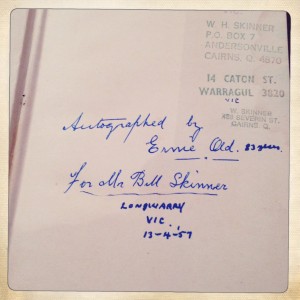 W. H. SKINNER
P.O. BOX 7
ANDERSONVILLE
CAIRNS, Q. 4870
14 CATON ST.
WARRAGUL 3820
VIC
W. SKINNER
SEVERIN ST.
CAIRNS. Q.
Autographed by
Ernie Old. 83 years.
For Mr Bill Skinner
LONGWARRY
VIC.
13-4-57